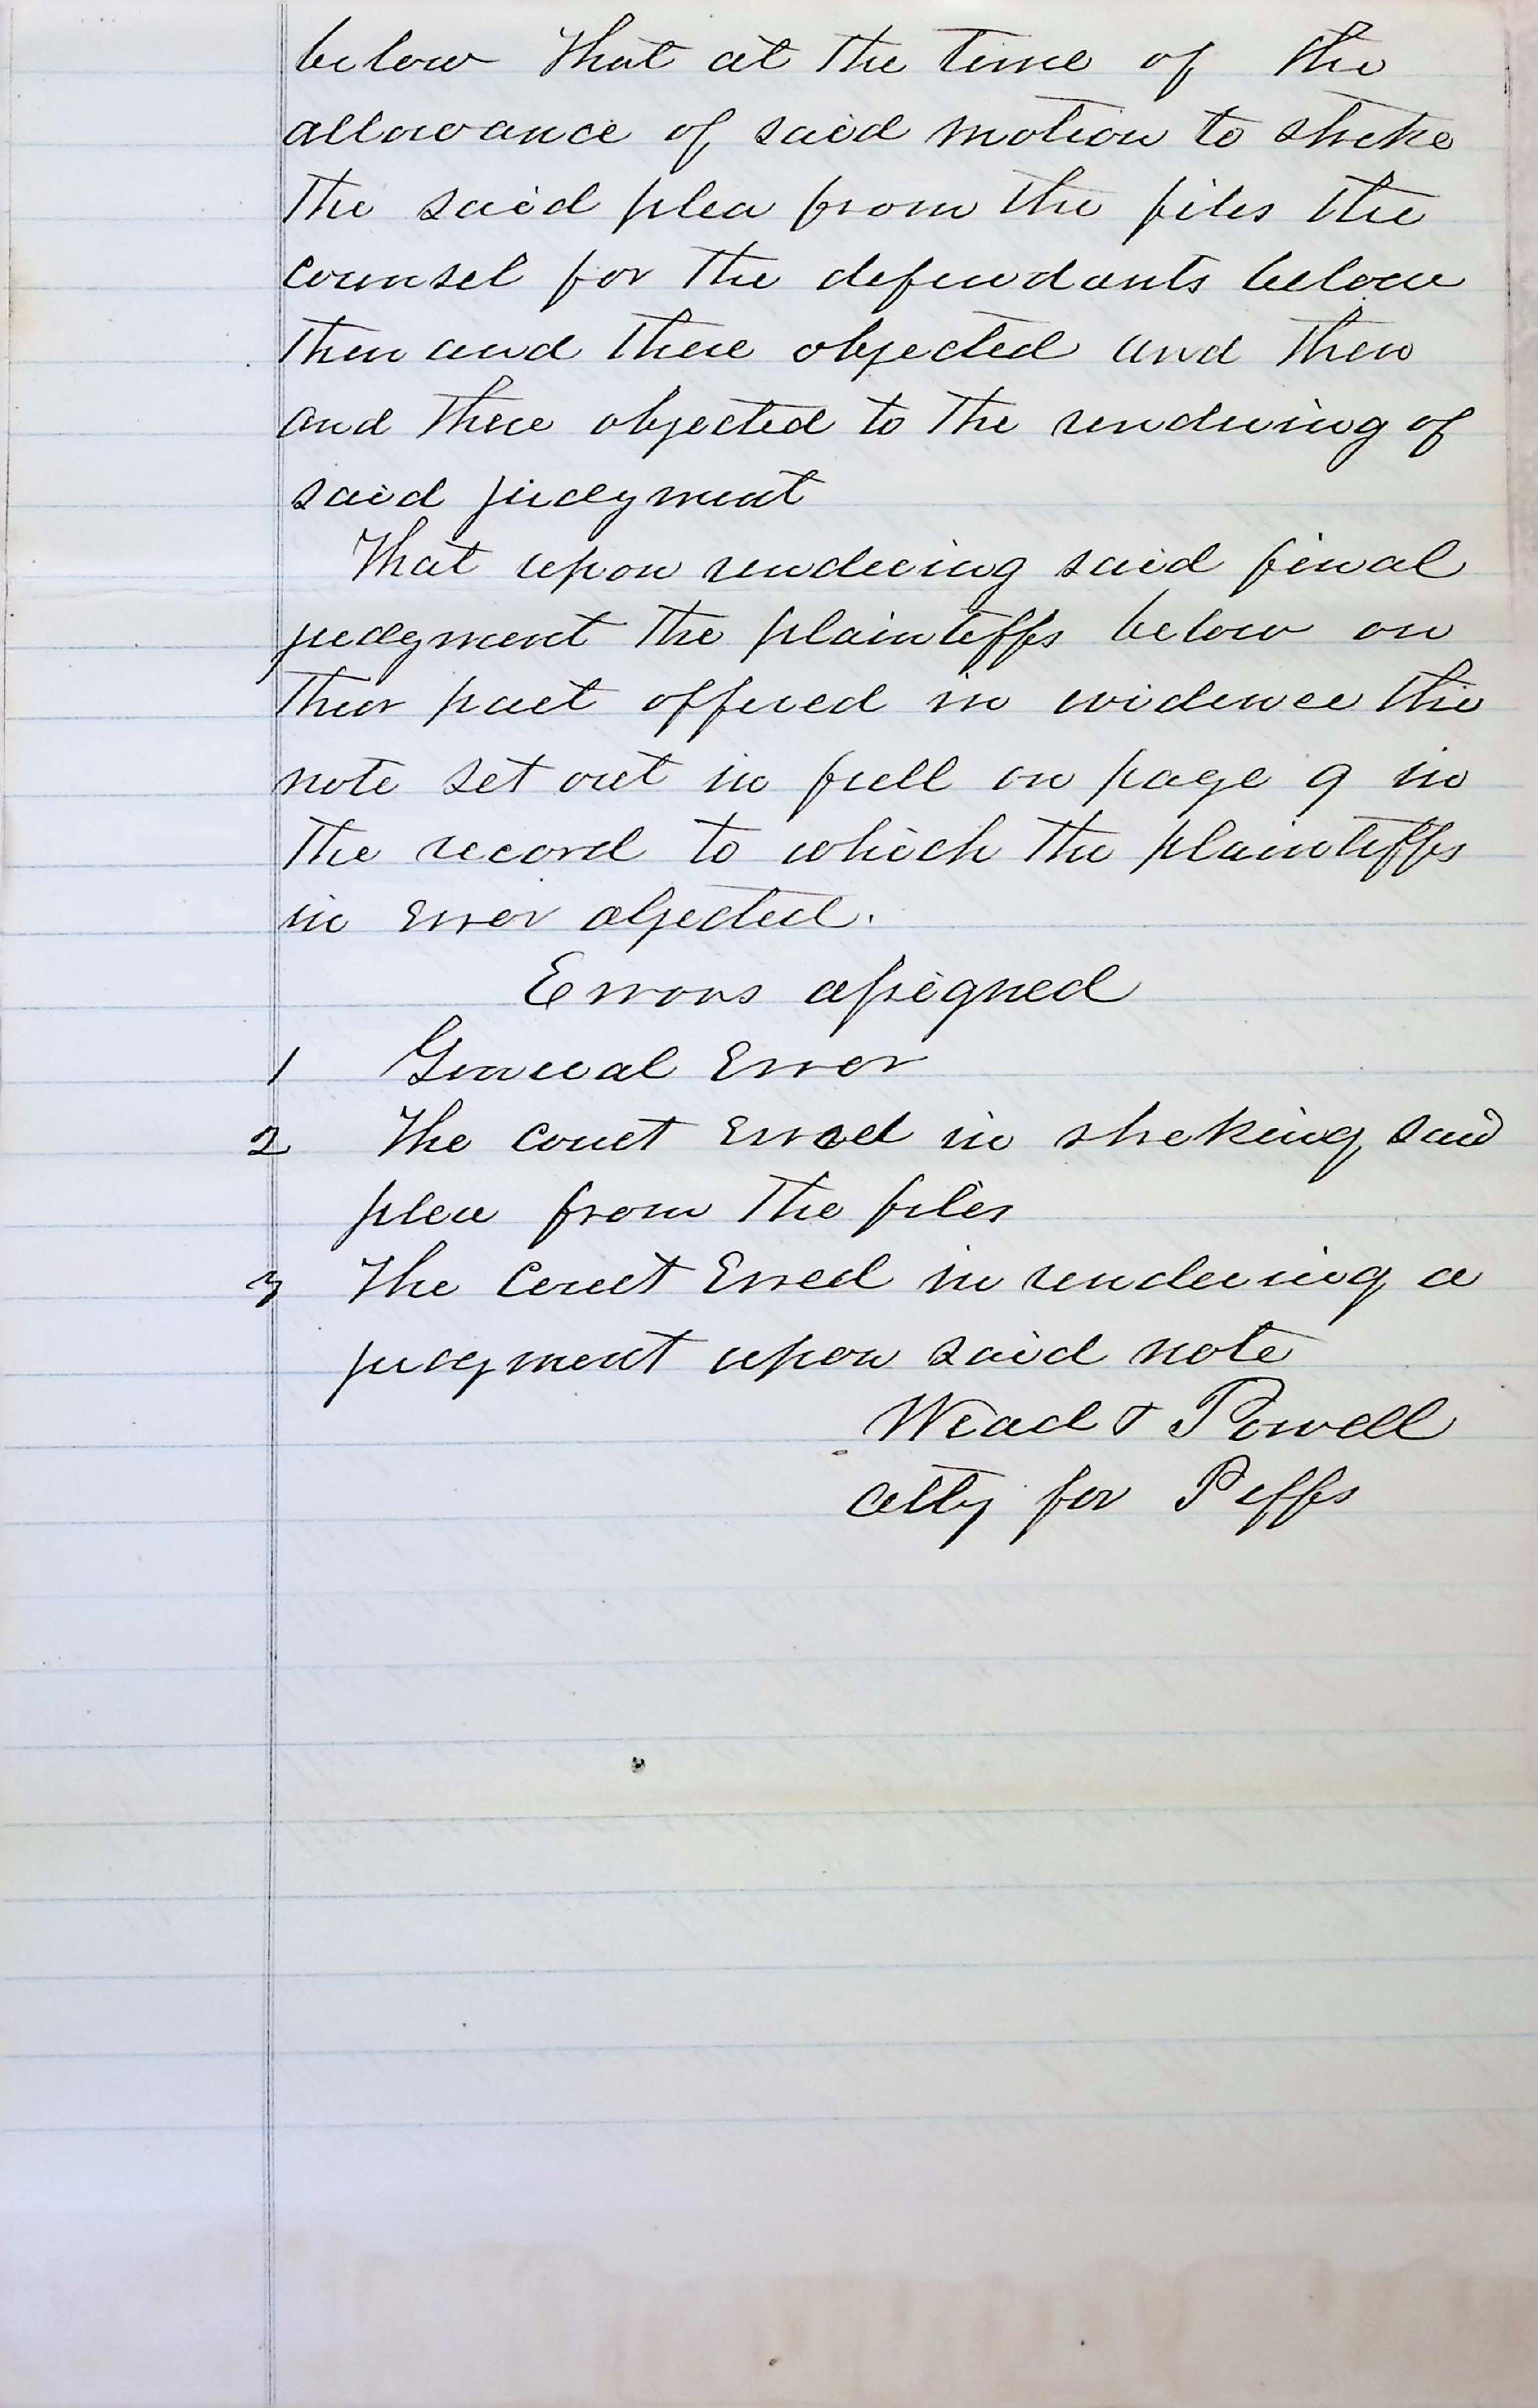 below that at the time of the
allowance of said motion to strike
the said plea from the files the
counsel for the defendants below
then and there objected and then
and there objected to the rendering of
said judgment
That upon rendering said final
judgment the plaintiffs below on
their part offered in evidence the
note set out in full on page 9 in
the record to which the plaintiffs
in Error objected.
Errors assigned
1 General Error
2 The court Erred in striking said
plea from the files
3 The Court Erred in rendering a
judgment upon said note
Wead & Powell
atty for Piffs